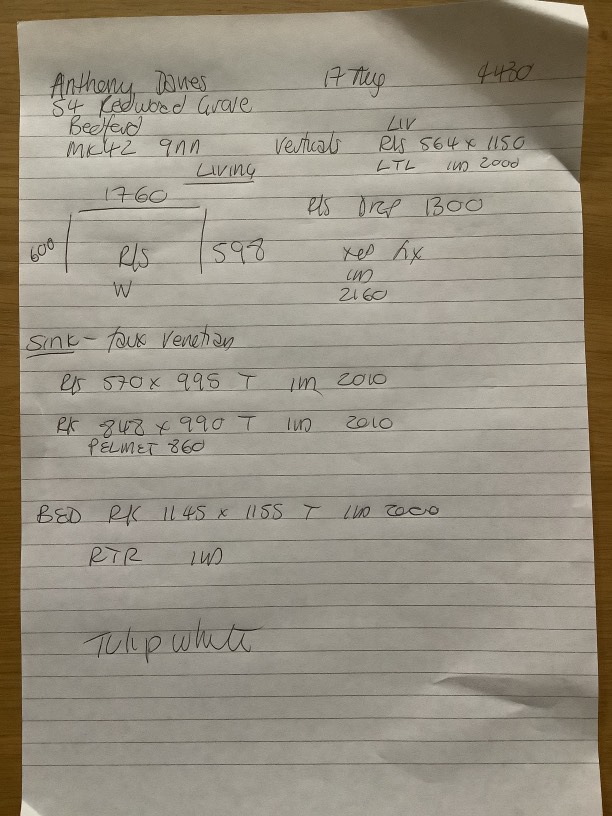 Anthony Dones 17 Aug 4430
54 Redwood Grove
Bedford
MK42 9nn Verticals LIV R/s 564 x 1150
LTL IW 2000
Living
1760 R/s Drop 1300
600 R/S 598
W IW
2160
Sink - faux Venetian
R/s 570 x 995 T IW 2010
RK 848 x 990 T IW 2010
PELMET 860
BED RK 1145 x 1155 T IW 2000
RTR IW
Tulip white